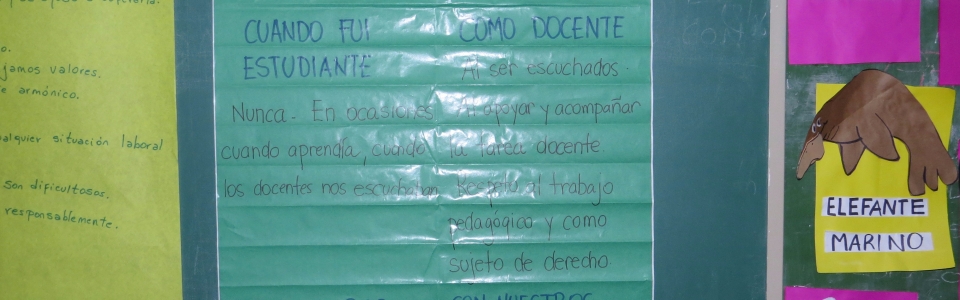 o.
jamos valores.
e armónico.
alquier situación laboral
son dificultosos.
responsablemente.
CUANDO FUI
ESTUDIANTE
Nunca. En ocasiones
cuando aprendía, cuando
los docentes nos escuchaban
COMO DOCENTE
Al ser escuchados.
Al apoyar y acompañar
la tarea docente.
Respeto al trabajo
pedagógico y como
sujeto de derecho.
CON NUESTROS
ELEFANTE
MARINO